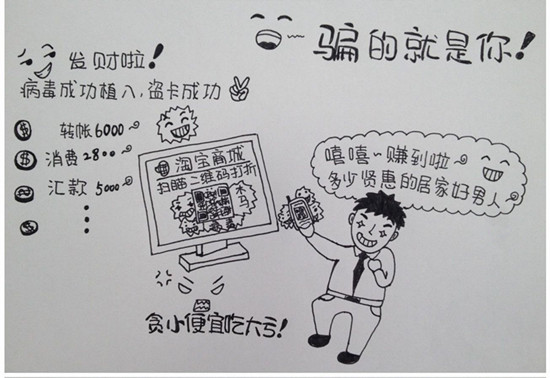 骗的就是你!
发财啦!
病毒成功植入,盗卡成功
转帐6000
消费2800
汇款5000
淘宝商城
扫瞄二维码打折
木马
病毒
嘻嘻~赚到啦
多少贤惠的居家好男人
贪小便宜吃大亏!